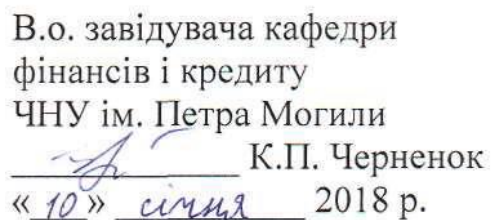 В.о. завідувача кафедри
фінансів і кредиту
ЧНУ ім. Петра Могили
К.П. Черненок
« 10 » січня 2018 р.